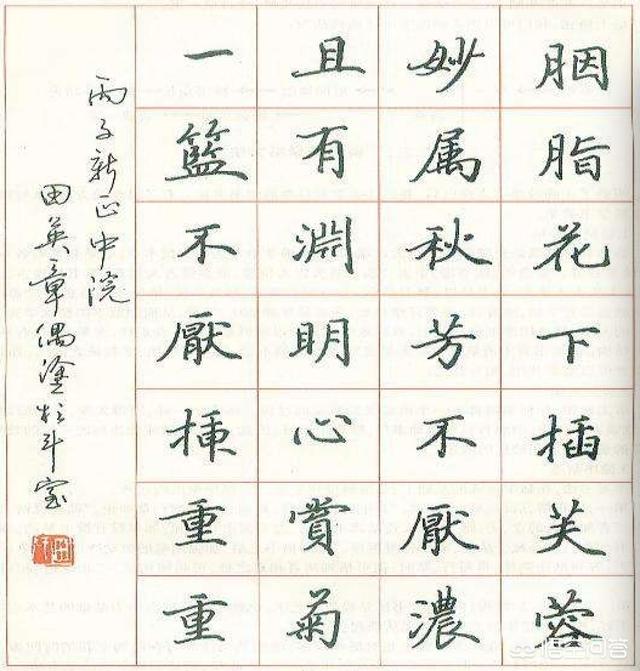 胭脂花下插芙蓉
妙属秋芳不厭濃
且有淵明心賞菊
一籃不厭挿重重
丙子新正中院
田英章偶塗於斗室
悟空问答